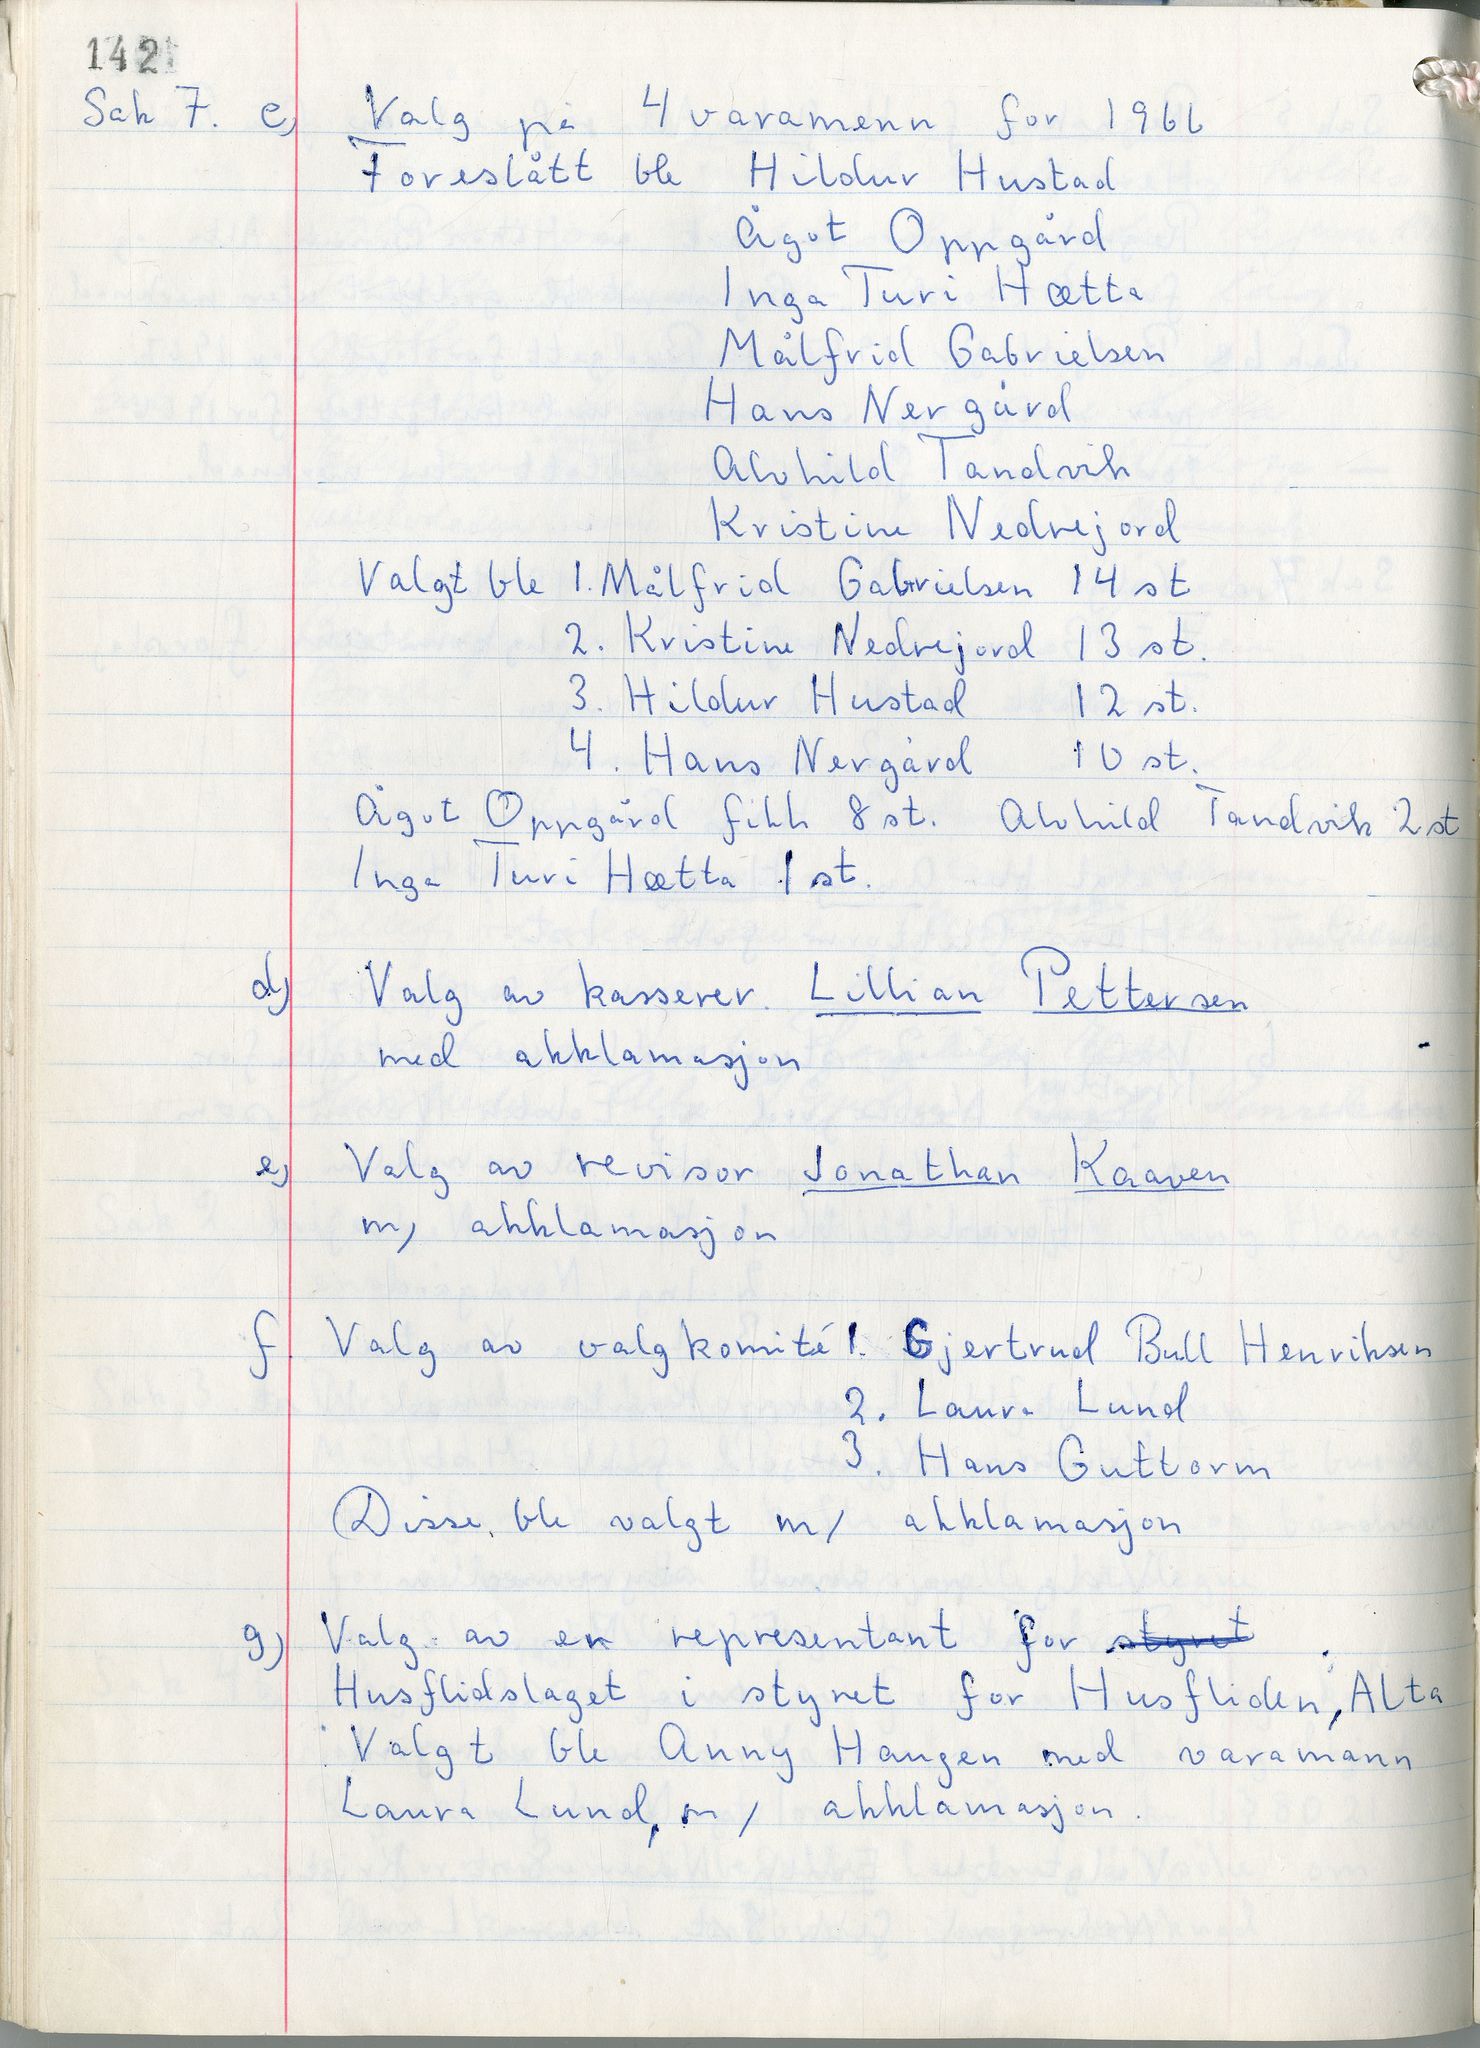 142
Sak 7. c) Valg på 4 varamenn for 1966
Foreslått ble Hildur Hustad
Ågot Oppgård
Inga Turi Hætta
Målfrid Gabrielsen
Hans Nergård
Alvhild Tandvik
Kristine Nedrejord
Valgt ble 1. Målfrid Gabrielsen 14 st
2. Kristine Nedrejord 13 st.
3. Hildur Hustad 12 st.
4. Hans Nergård 10 st.
Ågot Oppgård fikk 8 st. Alvhild Tandvik 2 st
Inga Turi Hætta 1 st.
d) Valg av kasserer. Lillian Pettersen
med akklamasjon
e) Valg av revisor Jonathan Kaaven
m/ akklamasjon
f. Valg av valgkomité 1. Gjertrud Bull Henriksen
2. Laura Lund
3. Hans Guttorm
Disse ble valgt m/ akklamasjon
g) Valg av en representant for styret
Husflidslaget i styret for Husfliden, Alta
Valgt ble Anny Haugen med varamann
Laura Lund, m/ akklamasjon.